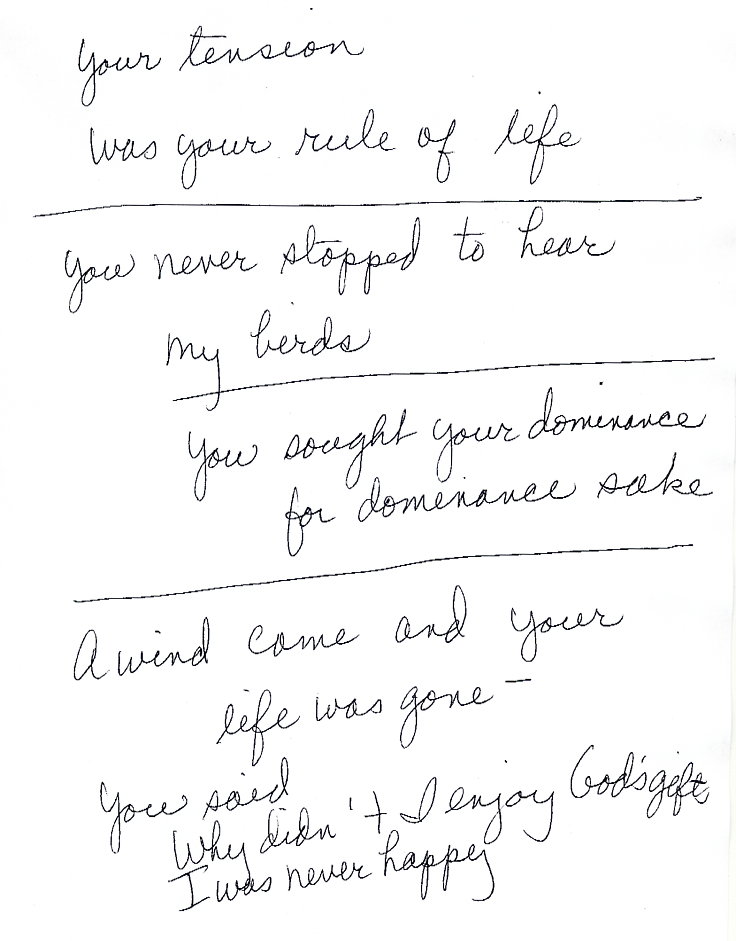 Your tension
was your rule of life
You never stopped to hear
my birds
You sought your dominance
for dominance sake
A wind come and your
life was gone –
You said
Why didn't I enjoy God's gift
I was never happy